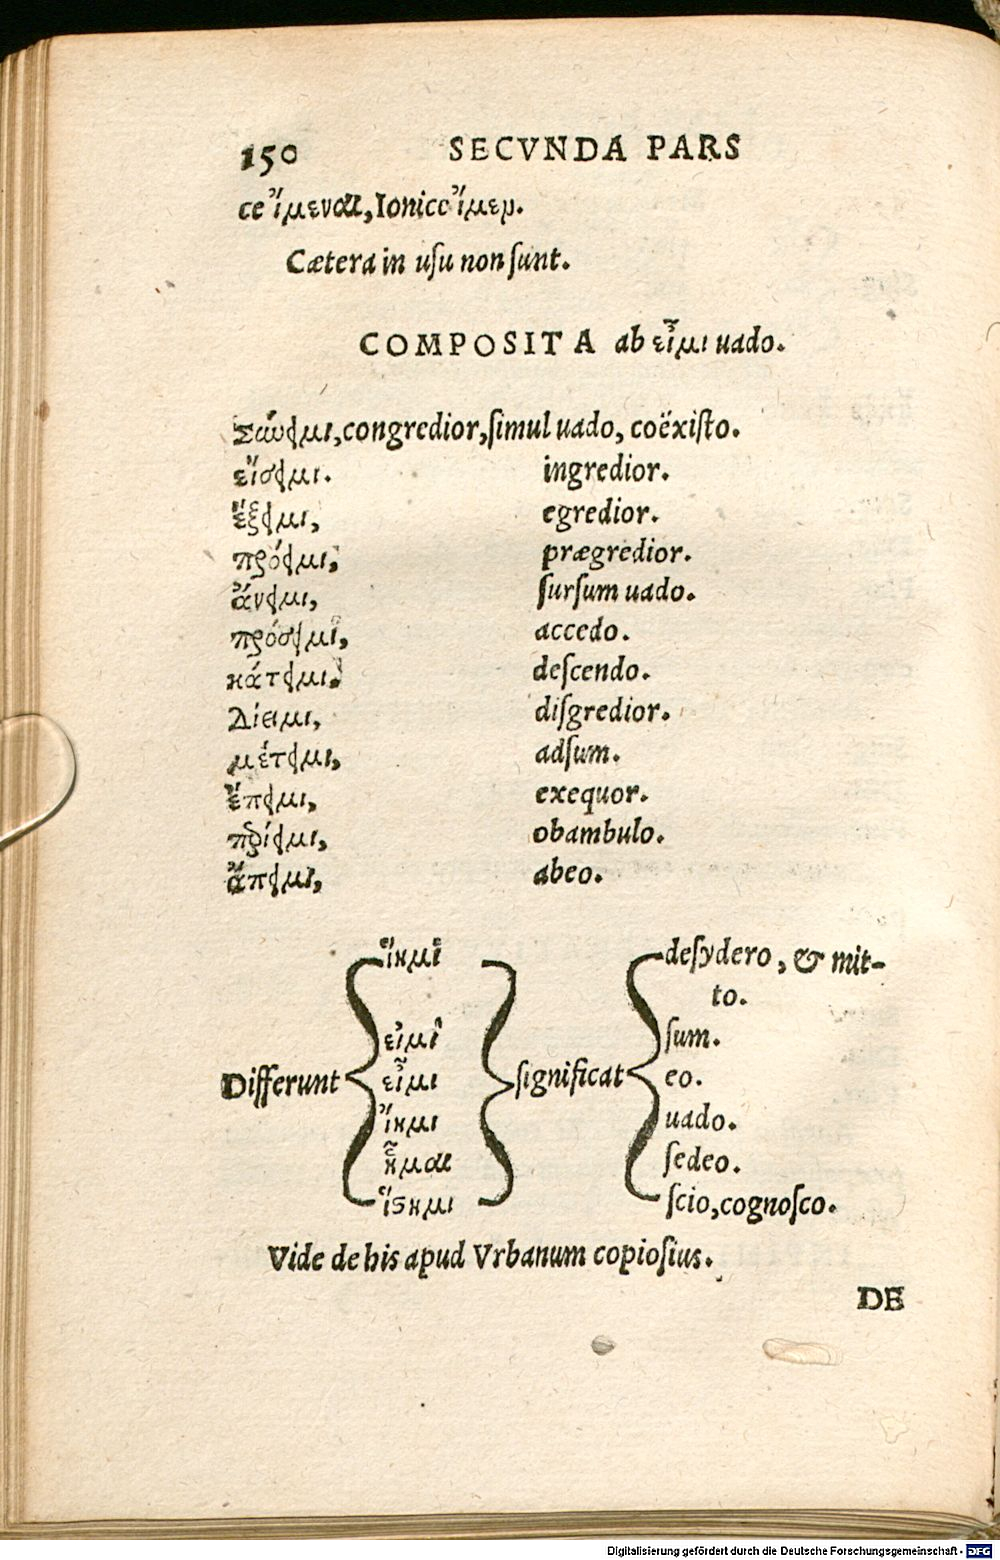 150 SECVNDA PARS
ce ἴμεναι, Ionice ἴμεν.
Cætera in uſu non ſunt.
COMPOSITA ab εἶμι uado.
Σύνειμι, congredior, ſimul uado, coëxiſto.
εἴσειμι. ingredior.
ἔξειμι, egredior.
πρόειμι, prægredior.
ἄνειμι, ſurſum uado.
πρόσειμι, accedo.
κάτειμι. deſcendo.
Δίειμι, diſgredior.
μέτειμι, adſum.
ἔπειμι, exequor.
περίειμι, obambulo.
ἄπειμι, abeo.
ἵημι deſydero, & mit-
to.
εἰμὶ ſum.
Differunt εἶμι ſignificat eo.
ἴημι uado.
ἧμαι ſedeo.
ἵσημι ſcio, cognoſco.
Vide de his apud Vrbanum copioſius.
DE
Digitalisierung gefördert durch die Deutsche Forschungsgemeinschaft - DFG